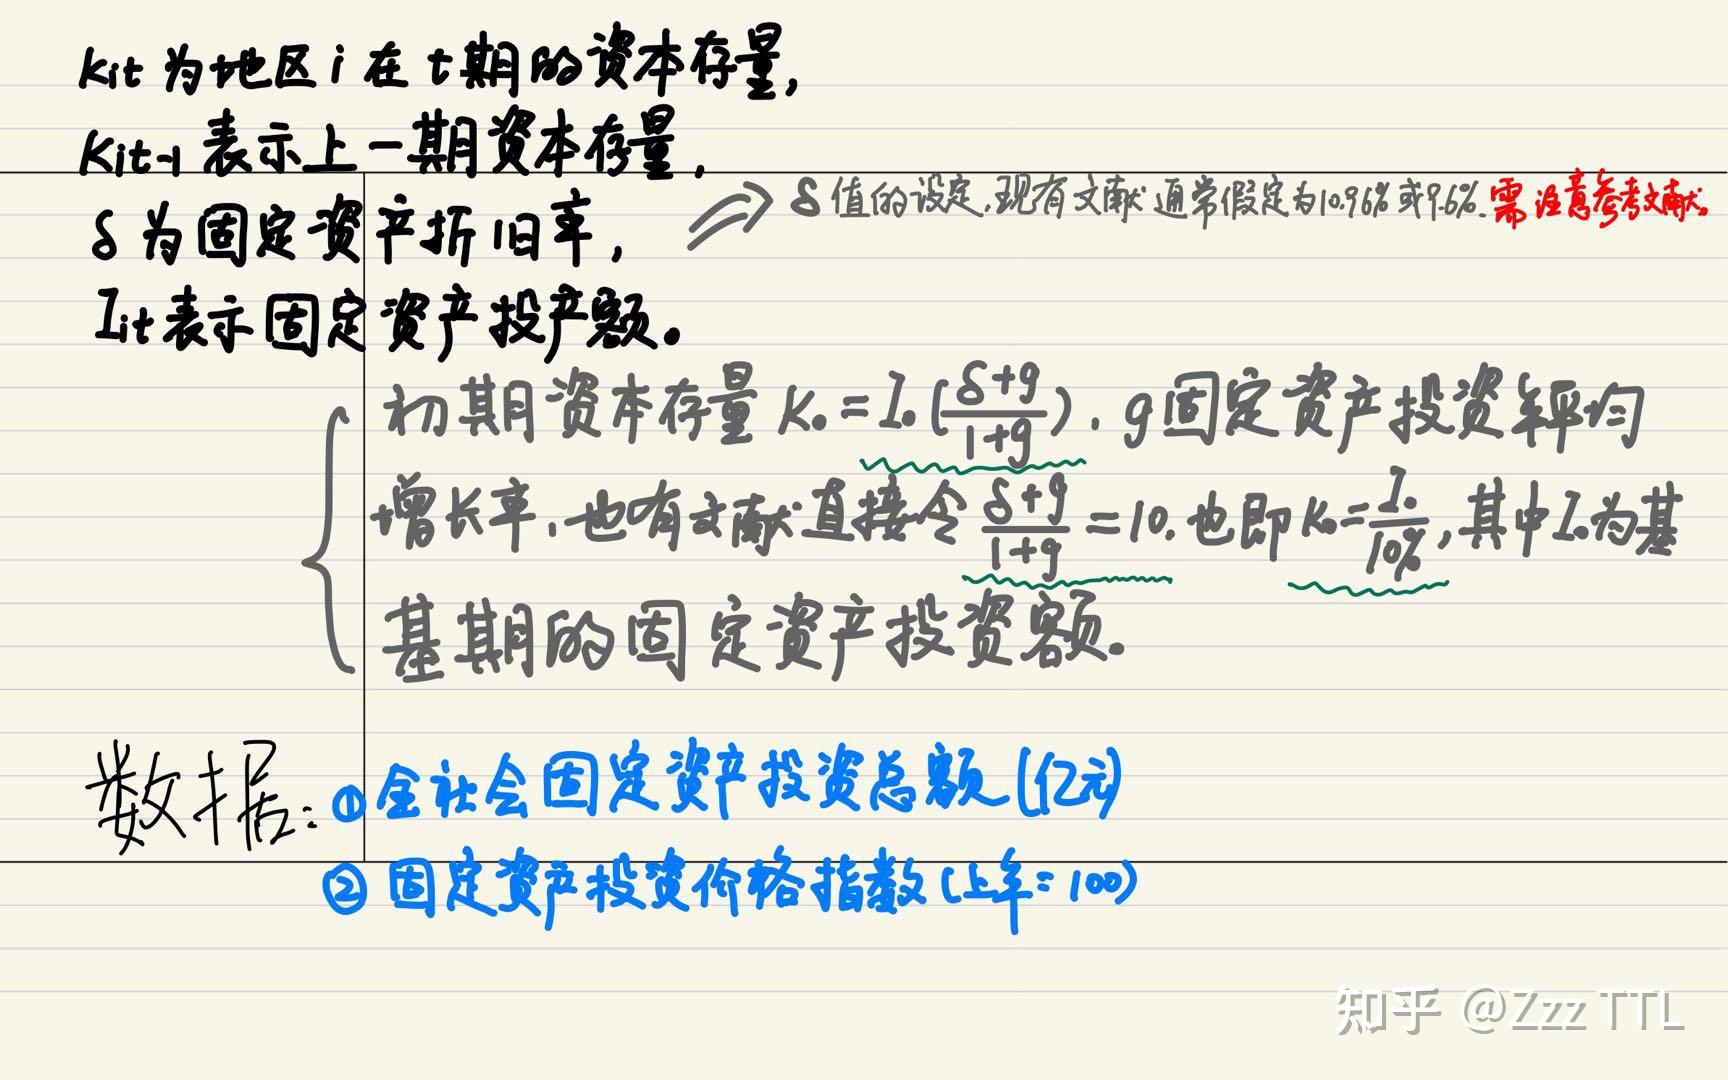 Kit 为地区 i 在 t期的资本存量,
Kit-1 表示上一期资本存量,
δ 为固定资产折旧率,
δ 值的设定,现有文献通常假定为10.96%或9.6%.需注意参考文献。
Iit表示固定资产投产额。
初期资本存量 K₀=I₀(δ+g/1+g). g固定资产投资年平均
增长率,也有文献直接令 δ+g/1+g=10.也即K₀=I₀/10%,其中I₀为基
基期的固定资产投资额。
数据: ①全社会固定资产投资总额(亿元)
②固定资产投资价格指数(上年=100)
知乎 @Zzz TTL